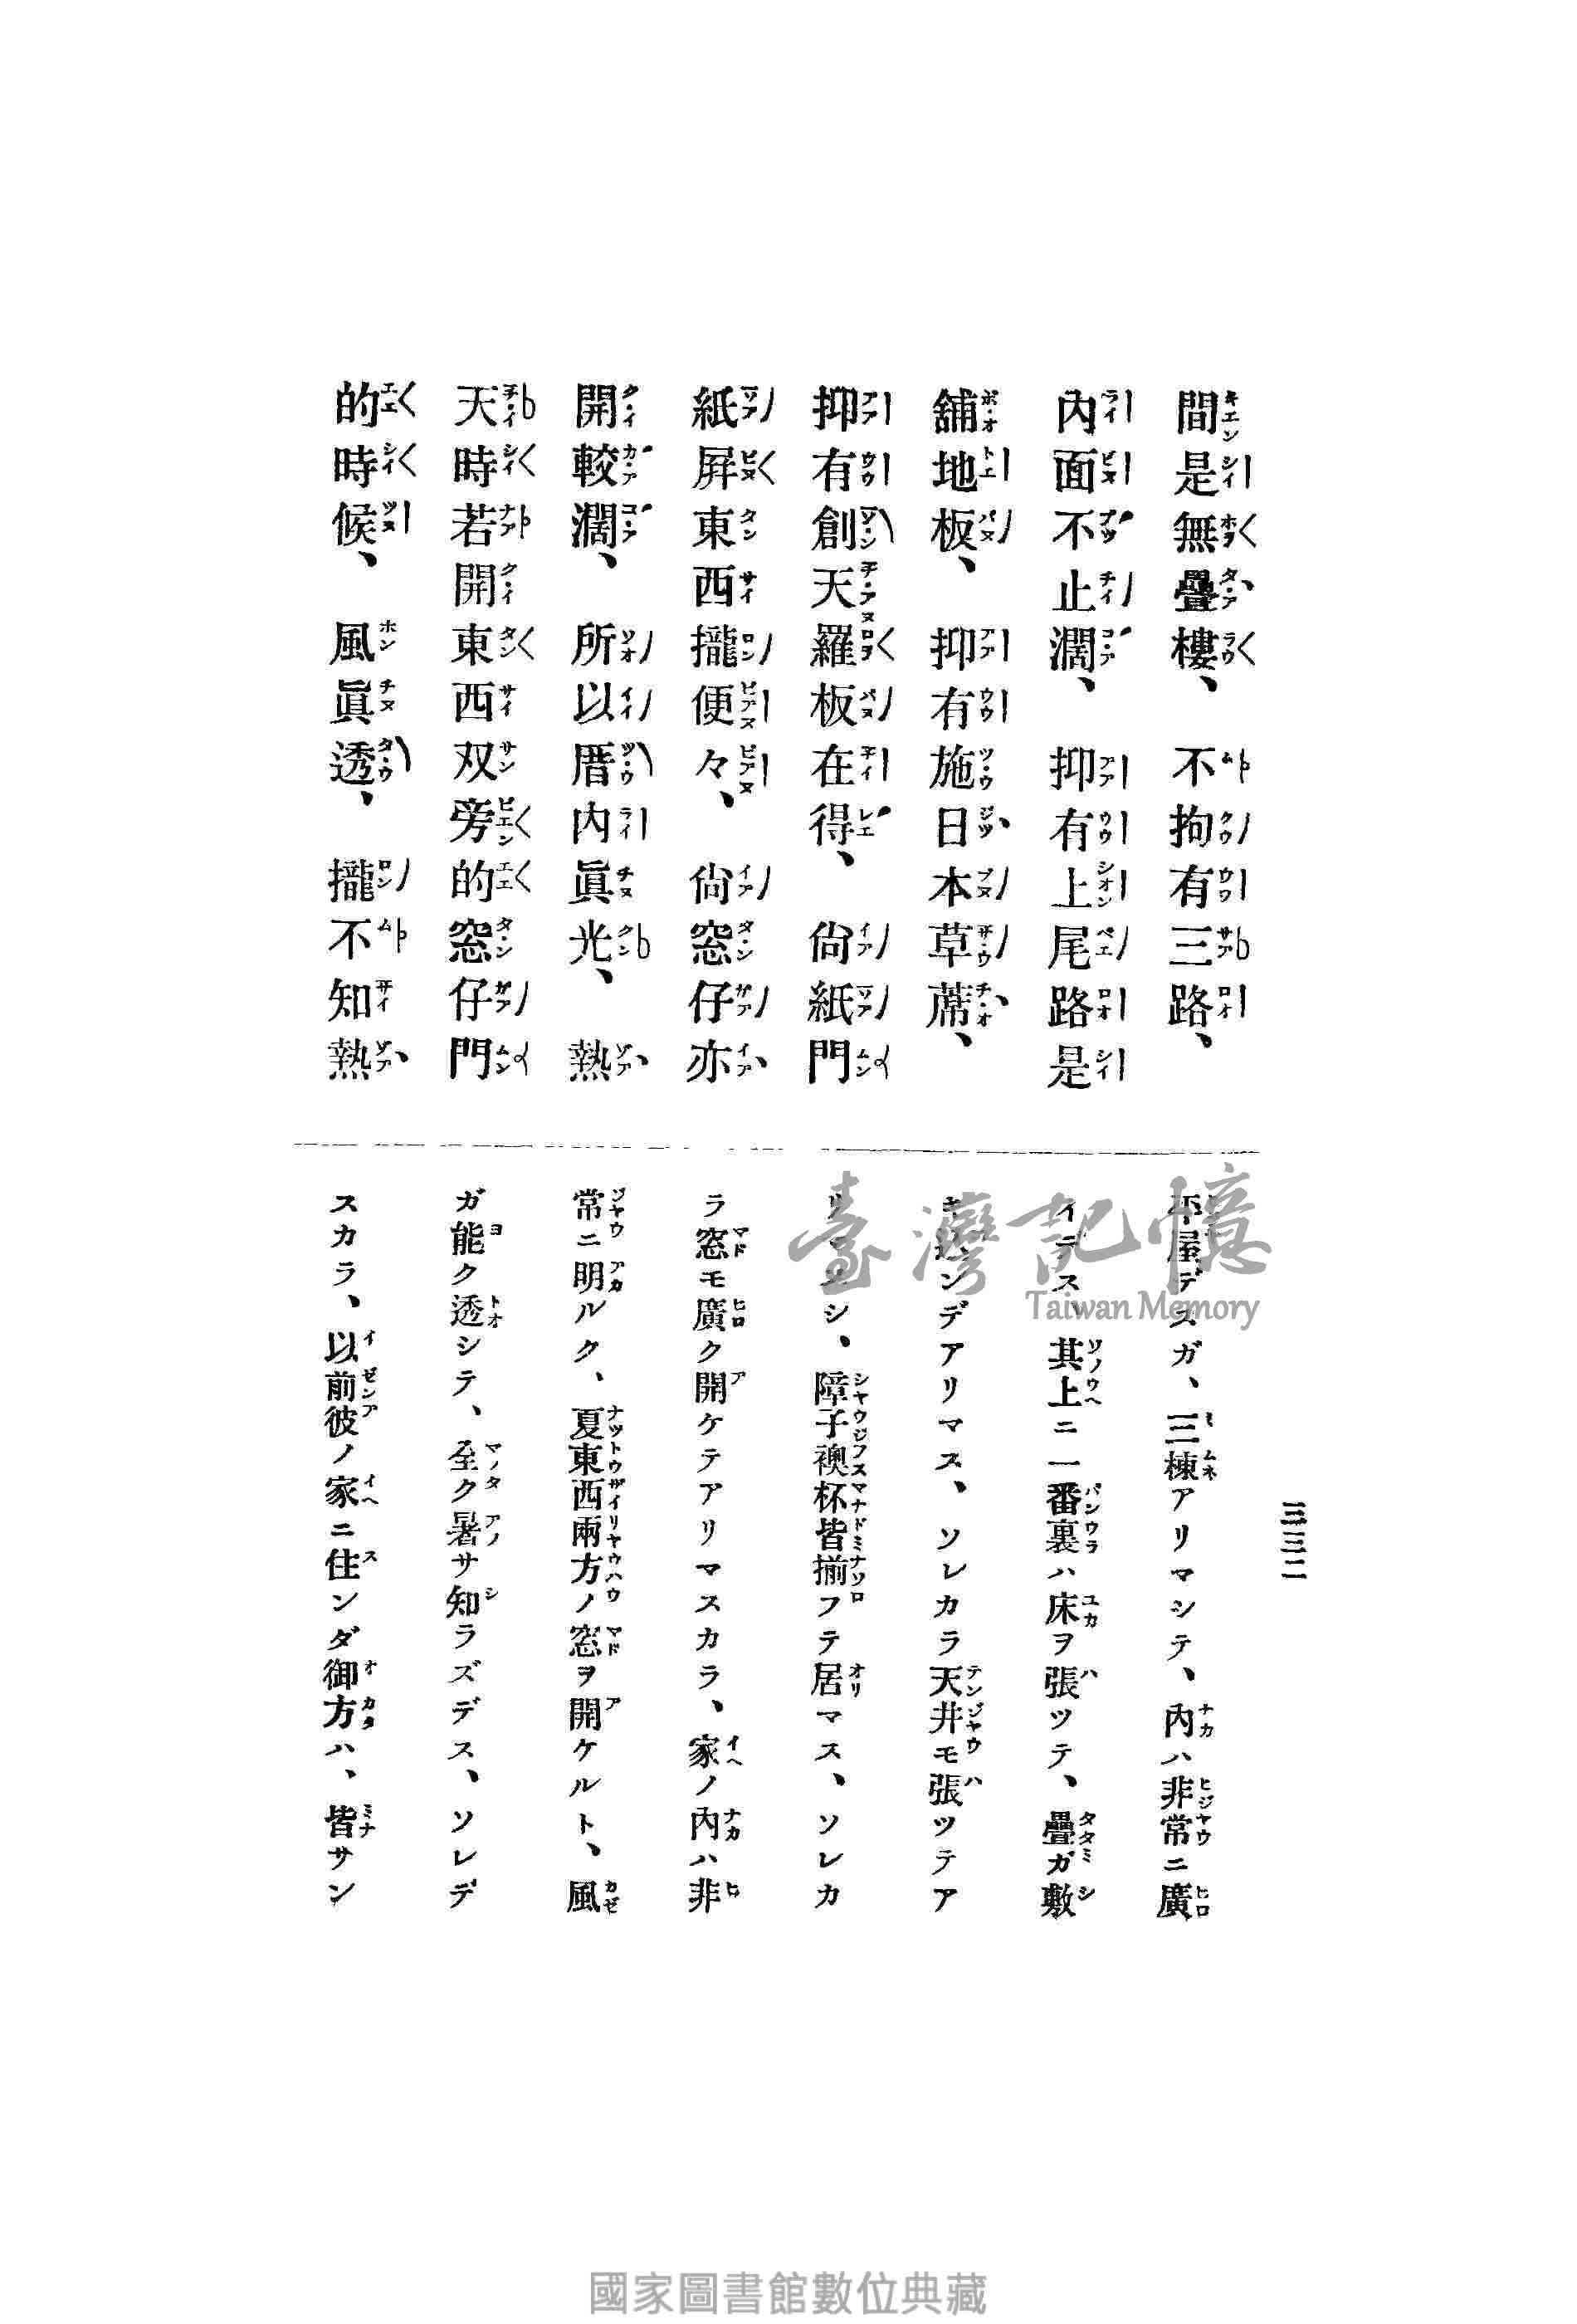 三三二
間是無疊樓、不拘有三路、
內面不止濶、抑有上尾路是
舖地板、抑有施日本草蓆、
抑有創天羅板在得、尙紙門
紙屏東西攏便々、尙窓仔亦
開較濶、所以厝內眞光、熱
天時若開東西双旁的窓仔門
的時候、風眞透、攏不知熱
平屋デスガ、三棟アリマシテ、內ハ非常ニ廣
イデス、其上ニ一番裏ハ床ヲ張ツテ、疊ガ敷
キ込ンデアリマス、ソレカラ天井モ張ツテア
リマスシ、障子襖杯皆揃フテ居マス、ソレカ
ラ窓モ廣ク開ケテアリマスカラ、家ノ內ハ非
常ニ明ルク、夏東西兩方ノ窓ヲ開ケルト、風
ガ能ク透シテ、至ク暑サ知ラズデス、ソレデ
スカラ、以前彼ノ家ニ住ンダ御方ハ、皆サン
臺灣記憶
Taiwan Memory
國家圖書館數位典藏